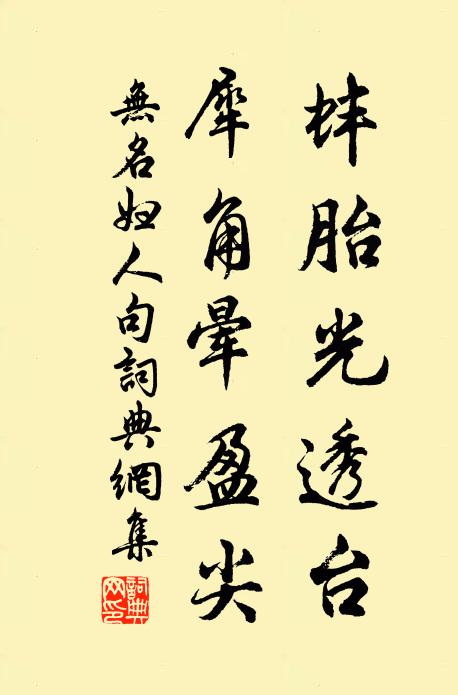 蚌胎光透台
犀角暈盈尖
無名妇人句詞典網集
詞典网印